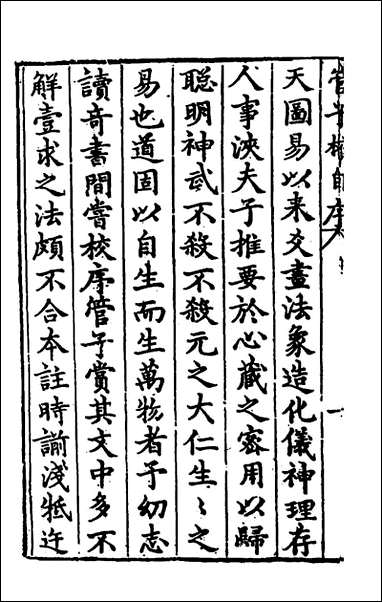 管子榷自序
一
天圖易以来爻畫法象造化儀神理存
人事浹夫子推要於心藏之宻用以歸
聦明神武不殺不殺元之大仁生〻之
易也道固以自生而生萬物者予幼志
讀奇書間嘗校序管子賞其文中多不
解壹求之法頗不合本註時謭淺牴迕